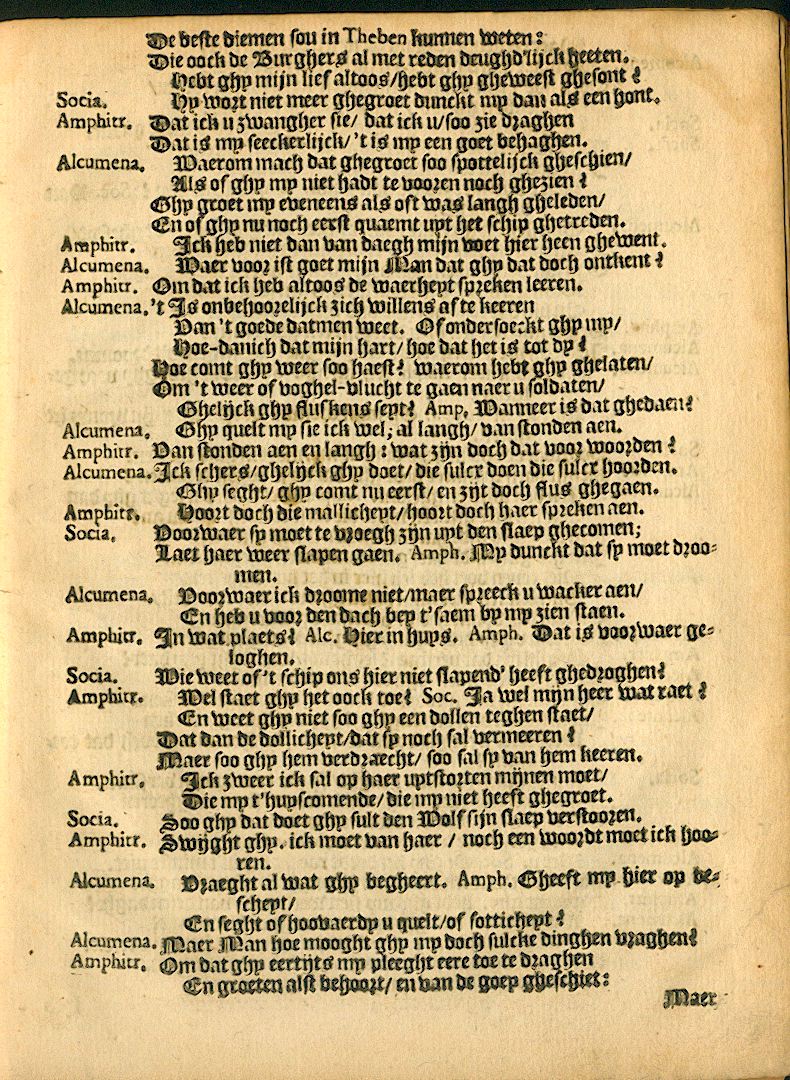 De beste diemen sou in Theben kunnen weten:
Die oock de Burghers al met reden deughd'lijck heeten.
Hebt ghy mijn lief altoos/hebt ghy gheweest ghesont?
Socia. Hy wort niet meer ghegroet dunckt my dan als een hont.
Amphitr. Dat ick u zwangher sie/ dat ick u/soo zie draghen
Dat is my seeckerlijck/ 't is my een goet behaghen.
Alcumena. Waerom mach dat ghegroet soo spottelijck gheschien/
Als of ghy my niet hadt te vooren noch ghezien?
Ghy groet my eveneens als oft was langh gheleden/
En of ghy nu noch eerst quaemt uyt het schip ghetreden.
Amphitr. Ick heb niet dan van daegh mijn voet hier heen ghewent.
Alcumena. Waer voor ist goet mijn Man dat ghy dat doch ontkent?
Amphitr. Om dat ick heb altoos de waerheyt spreken leeren.
Alcumena. 't Is onbehoorelijck zich willens af te keeren
Van 't goede datmen weet. Of ondersoeckt ghy my/
Hoe-danich dat mijn hart/ hoe dat het is tot dy?
Hoe comt ghy weer soo haest? waerom hebt ghy ghelaten/
Om 't weer of voghel-vlucht te gaen naer u soldaten/
Ghelijck ghy fluskens seyt? Amp. Wanneer is dat ghedaen?
Alcumena. Ghy quelt my sie ick wel; al langh/ van stonden aen.
Amphitr. Van stonden aen en langh: wat zijn doch dat voor woorden?
Alcumena. Ick schers/ghelijck ghy doet/ die sulcx doen die sulcx hoorden.
Ghy seght/ ghy comt nu eerst/ en zijt doch flus ghegaen.
Amphitr. Hoort doch die mallicheyt/hoort doch haer spreken aen.
Socia. Voorwaer sy moet te vroegh zijn uyt den slaep ghecomen;
Laet haer weer slapen gaen. Amph. My dunckt dat sy moet droo-
men.
Alcumena. Voorwaer ick droome niet/maer spreeck u wacker aen/
En heb u voor den dach bey t'saem by my zien staen.
Amphitr. In wat plaets? Alc. Hier in huys. Amph. Dat is voorwaer ge-
loghen.
Socia. Wie weet of 't schip ons hier niet slapend' heeft ghedroghen?
Amphitr. Wel staet ghy het oock toe? Soc. Ja wel mijn heer wat raet?
En weet ghy niet soo ghy een dollen teghen staet/
Dat dan de dollicheyt/dat sy noch sal vermeeren?
Maer soo ghy hem verdraecht/ soo sal sy van hem keeren.
Amphitr. Ick zweer ick sal op haer uytstorten mijnen moet/
Die my t'huyscomende/ die my niet heeft ghegroet.
Socia. Soo ghy dat doet ghy sult den Wolf sijn slaep verstooren.
Amphitr. Swijght ghy. ick moet van haer / noch een woordt moet ick hoo-
ren.
Alcumena. Vraeght al wat ghy begheert. Amph. Gheeft my hier op be-
scheyt/
En seght of hoovaerdy u quelt/of sotticheyt?
Alcumena. Maer Man hoe mooght ghy my doch sulcke dinghen vraghen?
Amphitr. Om dat ghy eertijts my pleeght eere toe te draghen
En groeten alst behoort/ en van de goey gheschiet:
Maer